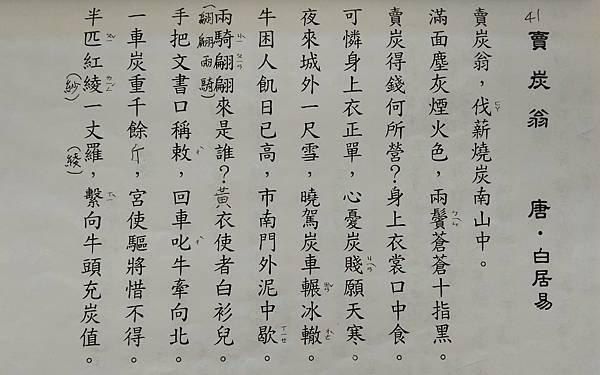 41 賣炭翁 唐·白居易
賣炭翁，伐薪燒炭南山中。
滿面塵灰煙火色，兩鬢蒼蒼十指黑。
賣炭得錢何所營？身上衣裳口中食。
可憐身上衣正單，心憂炭賤願天寒。
夜來城外一尺雪，曉駕炭車輾冰轍。
牛困人飢日已高，市南門外泥中歇。
兩騎翩翩來是誰？黃衣使者白衫兒。
(翩翩兩騎)
手把文書口稱敕，回車叱牛牽向北。
一車炭重千餘斤，宮使驅將惜不得。
半匹紅綾一丈羅，繫向牛頭充炭值。
(紗)
(綾)